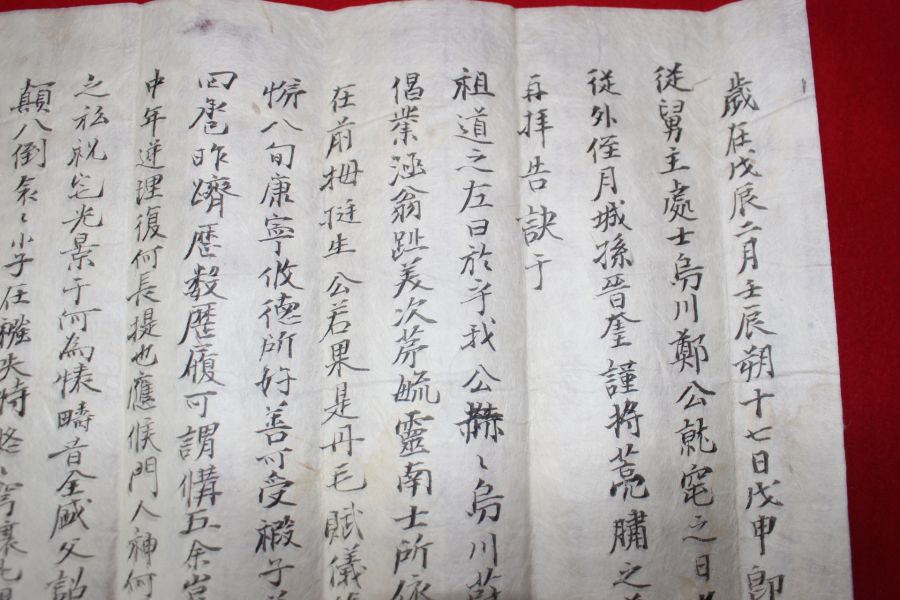 歲在戊辰二月壬辰朔十七日戊申卽
從舅主處士烏川鄭公就窀之日
從外侄月城孫晉奎謹將菲牖之
再拜告訣于
祖道之左曰於乎我公赫〻烏川
倡業涵翁趾美次茅毓靈南士所依
在前拇挺生公若果是丹毛賦儀
八旬康寧攸德所好善可受嘏子
四卺昨躋曆数歷履可謂備五余
中年逆理復何長提也應候門人神何
之祝宅光景于何為懷疇昔全盛父詔
顚八倒哀〻小子任失恃